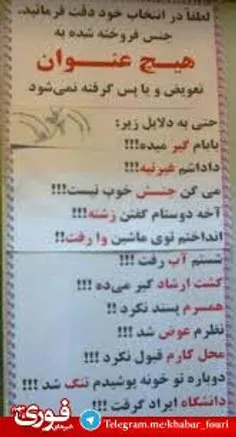 لطفا در انتخاب خود دقت فرمائید.
جنس فروخته شده به
هیچ عنوان
تعویض و یا پس گرفته نمی‌شود
حتی به دلایل زیر:
بابام گیر میده!!!
داداشم غیرتیه!!!
می گن جنسش خوب نیست!!!
آخه دوستام گفتن زشته!!!
انداختم توی ماشین وا رفت!!
شستم آب رفت !!!
گشت ارشاد گیر می‌ده !!!
همسرم پسند نکرد !!
نظرم عوض شد !!!
محل کارم قبول نکرد !!!
دوباره تو خونه پوشیدم تنگ شد !!!
دانشگاه ایراد گرفت !!!
فوری
Telegram.me/khabar_fouri